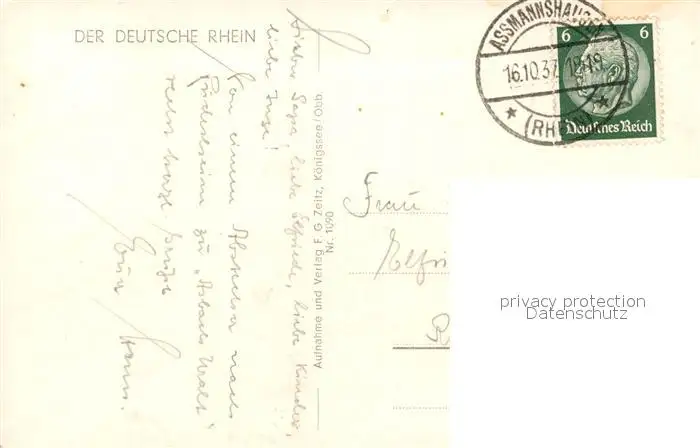 DER DEUTSCHE RHEIN
Lieber Papa, liebe Elfriede, liebe Kinder,
liebe Inge!
Von einem Abstecher nach
Rüdesheim zu „Asbach Uralt"
recht herzl. Grüße
Euer Hans.
Aufnahme und Verlag F. G. Zeitz, Königssee/Obb.
Nr. 1090
ASSMANNSHAUSEN
16.10.37. 18-19
(RHEIN)
6 6
Deutsches Reich
Frau
Elfri
privacy protection
Datenschutz